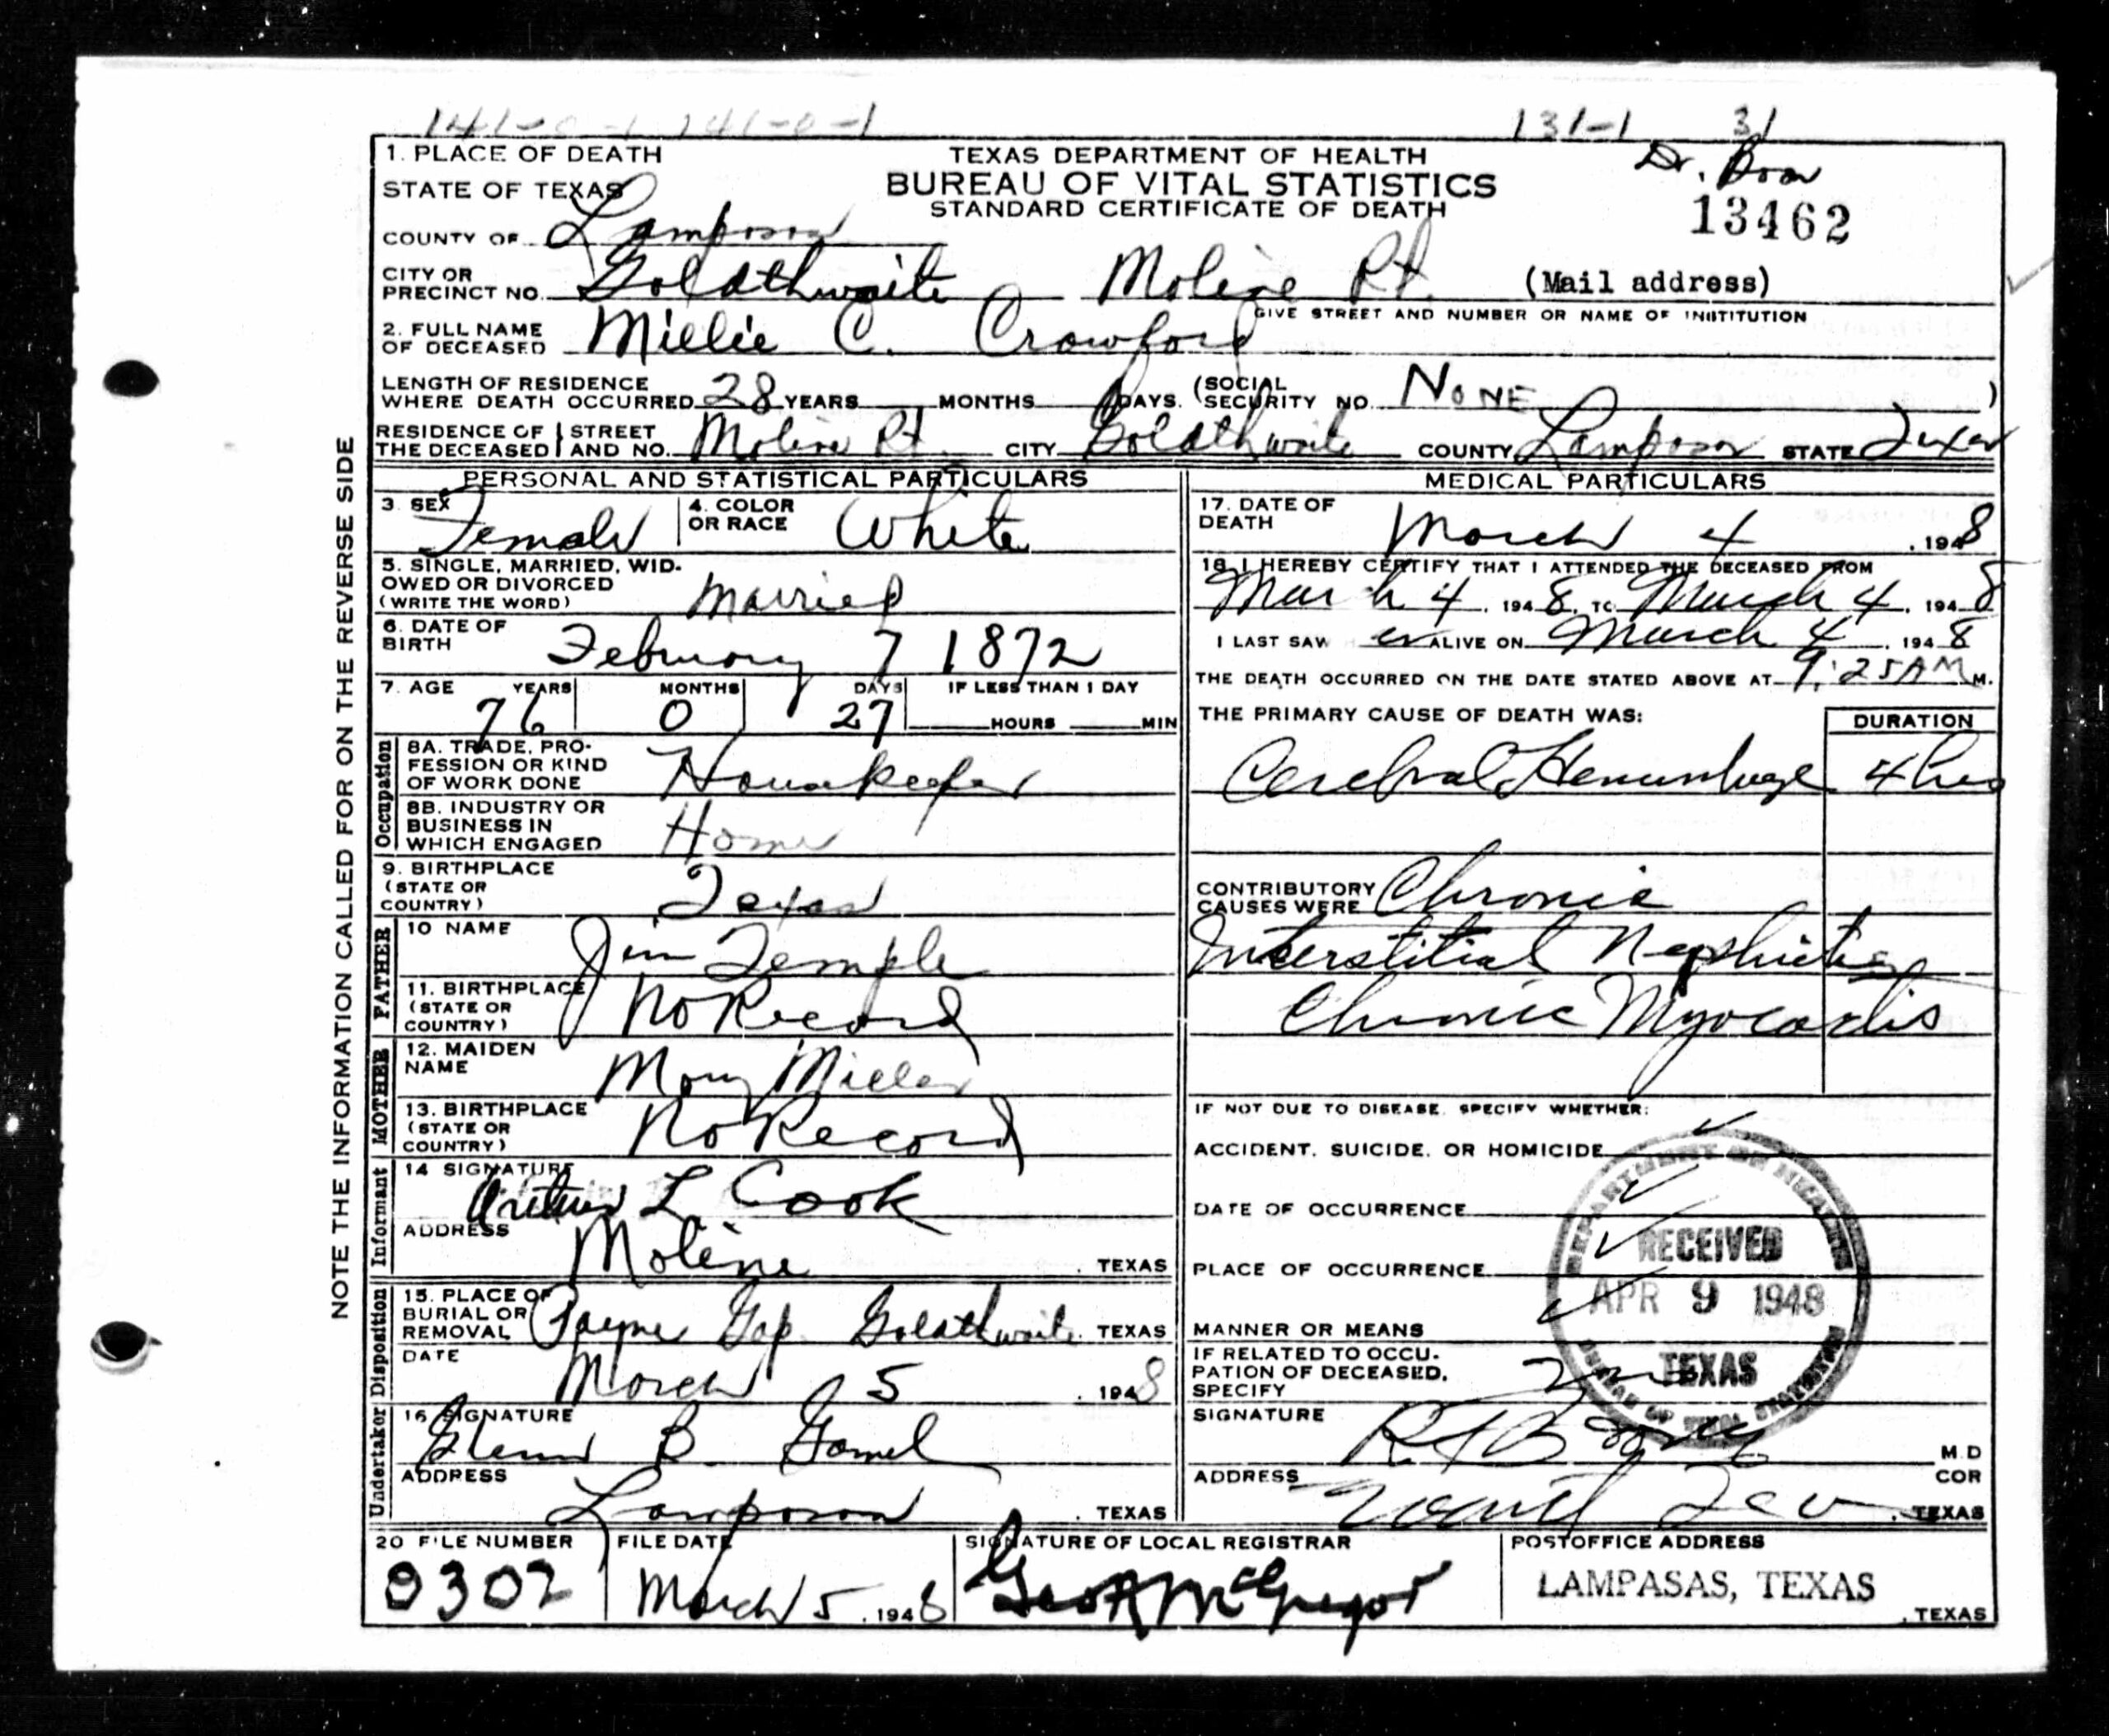 141-0-1 141-0-1 131-1 31
Dr. Boor
1. PLACE OF DEATH
STATE OF TEXAS
TEXAS DEPARTMENT OF HEALTH
BUREAU OF VITAL STATISTICS
STANDARD CERTIFICATE OF DEATH
13462
COUNTY OF Lampasas
CITY OR PRECINCT NO. Goldthwaite Moline Rt. (Mail address)
GIVE STREET AND NUMBER OR NAME OF INSTITUTION
2. FULL NAME OF DECEASED Millie C. Crawford
LENGTH OF RESIDENCE WHERE DEATH OCCURRED 28 YEARS MONTHS DAYS. (SOCIAL SECURITY NO. NONE )
RESIDENCE OF THE DECEASED STREET AND NO. Moline Rt. CITY Goldthwaite COUNTY Lampasas STATE Texas
NOTE THE INFORMATION CALLED FOR ON THE REVERSE SIDE
PERSONAL AND STATISTICAL PARTICULARS
3. SEX Female 4. COLOR OR RACE White
5. SINGLE, MARRIED, WIDOWED OR DIVORCED (WRITE THE WORD) Married
6. DATE OF BIRTH February 7 1872
7. AGE YEARS MONTHS DAYS IF LESS THAN 1 DAY
76 0 27 HOURS MIN
Occupation
8A. TRADE, PROFESSION OR KIND OF WORK DONE Housekeeper
8B. INDUSTRY OR BUSINESS IN WHICH ENGAGED Home
9. BIRTHPLACE (STATE OR COUNTRY) Texas
FATHER
10 NAME Jim Temple
11. BIRTHPLACE (STATE OR COUNTRY) No Record
MOTHER
12. MAIDEN NAME Mary Miller
13. BIRTHPLACE (STATE OR COUNTRY) No Record
Informant
14 SIGNATURE L Cook
ADDRESS Moline . TEXAS
Disposition
15. PLACE OF BURIAL OR REMOVAL Payne Gap Goldthwaite. TEXAS
DATE March 5 . 1948
Undertaker
16 SIGNATURE Glenn B. Gamel
ADDRESS Lampasas . TEXAS
MEDICAL PARTICULARS
17. DATE OF DEATH March 4 . 1948
18. I HEREBY CERTIFY THAT I ATTENDED THE DECEASED FROM
March 4 . 1948. TO March 4 . 1948
I LAST SAW H er ALIVE ON March 4 . 1948
THE DEATH OCCURRED ON THE DATE STATED ABOVE AT 9:25 AM M.
THE PRIMARY CAUSE OF DEATH WAS: DURATION
Cerebral Hemorrhage 4 hrs
CONTRIBUTORY CAUSES WERE Chronic
Interstitial Nephritis
Chronic Myocardis
IF NOT DUE TO DISEASE, SPECIFY WHETHER:
ACCIDENT, SUICIDE, OR HOMICIDE
DATE OF OCCURRENCE
PLACE OF OCCURRENCE
MANNER OR MEANS
IF RELATED TO OCCUPATION OF DECEASED, SPECIFY
RECEIVED
APR 9 1948
TEXAS
SIGNATURE M.D
ADDRESS COR
. TEXAS
20 FILE NUMBER FILE DATE SIGNATURE OF LOCAL REGISTRAR POSTOFFICE ADDRESS
0302 March 5 . 1948 Geo A McGregor LAMPASAS, TEXAS
. TEXAS